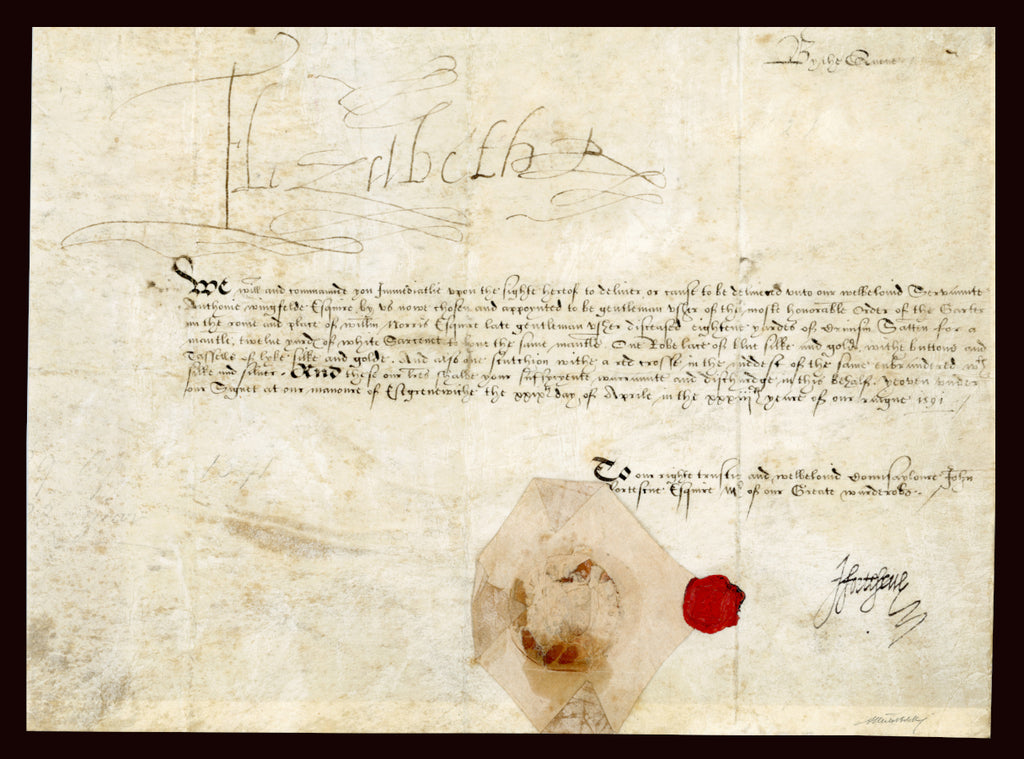 By the Quene
Elizabeth R
We will and commaunde you Immediatlie upon the sighte hereof to deliver or cause to be delivered unto our welbeloved Servaunte
Anthonie wingfelde Esquire by us nowe chosen and appoynted to be gentleman usher of the moste honorable Order of the Garter
in the rome and place of willm Norris Esquire late gentleman usher diseased eightene yardes of Crimsin Sattin for a
mantle, twelve yardes of white Sarcenet to lyne the same mantle. One Robe lace of blue silke and golde withe buttons and
Tasselle of lyke silke and golde. And also one scutchion withe a red crosse in the middest of the same enbraudered wth
silke and silver. And these our lres shalbe your sufficyente warraunte and dischardge in this behalf. yeoven under
our Signet at our manoure of Estgrenewiche the xxixth day of Aprile in the xxxiijth yeare of our raigne 1591
To our righte trustie and welbelovid Counsaylour John
Fortescue Esquire Mr of our Greate warderobe.
JFortescue